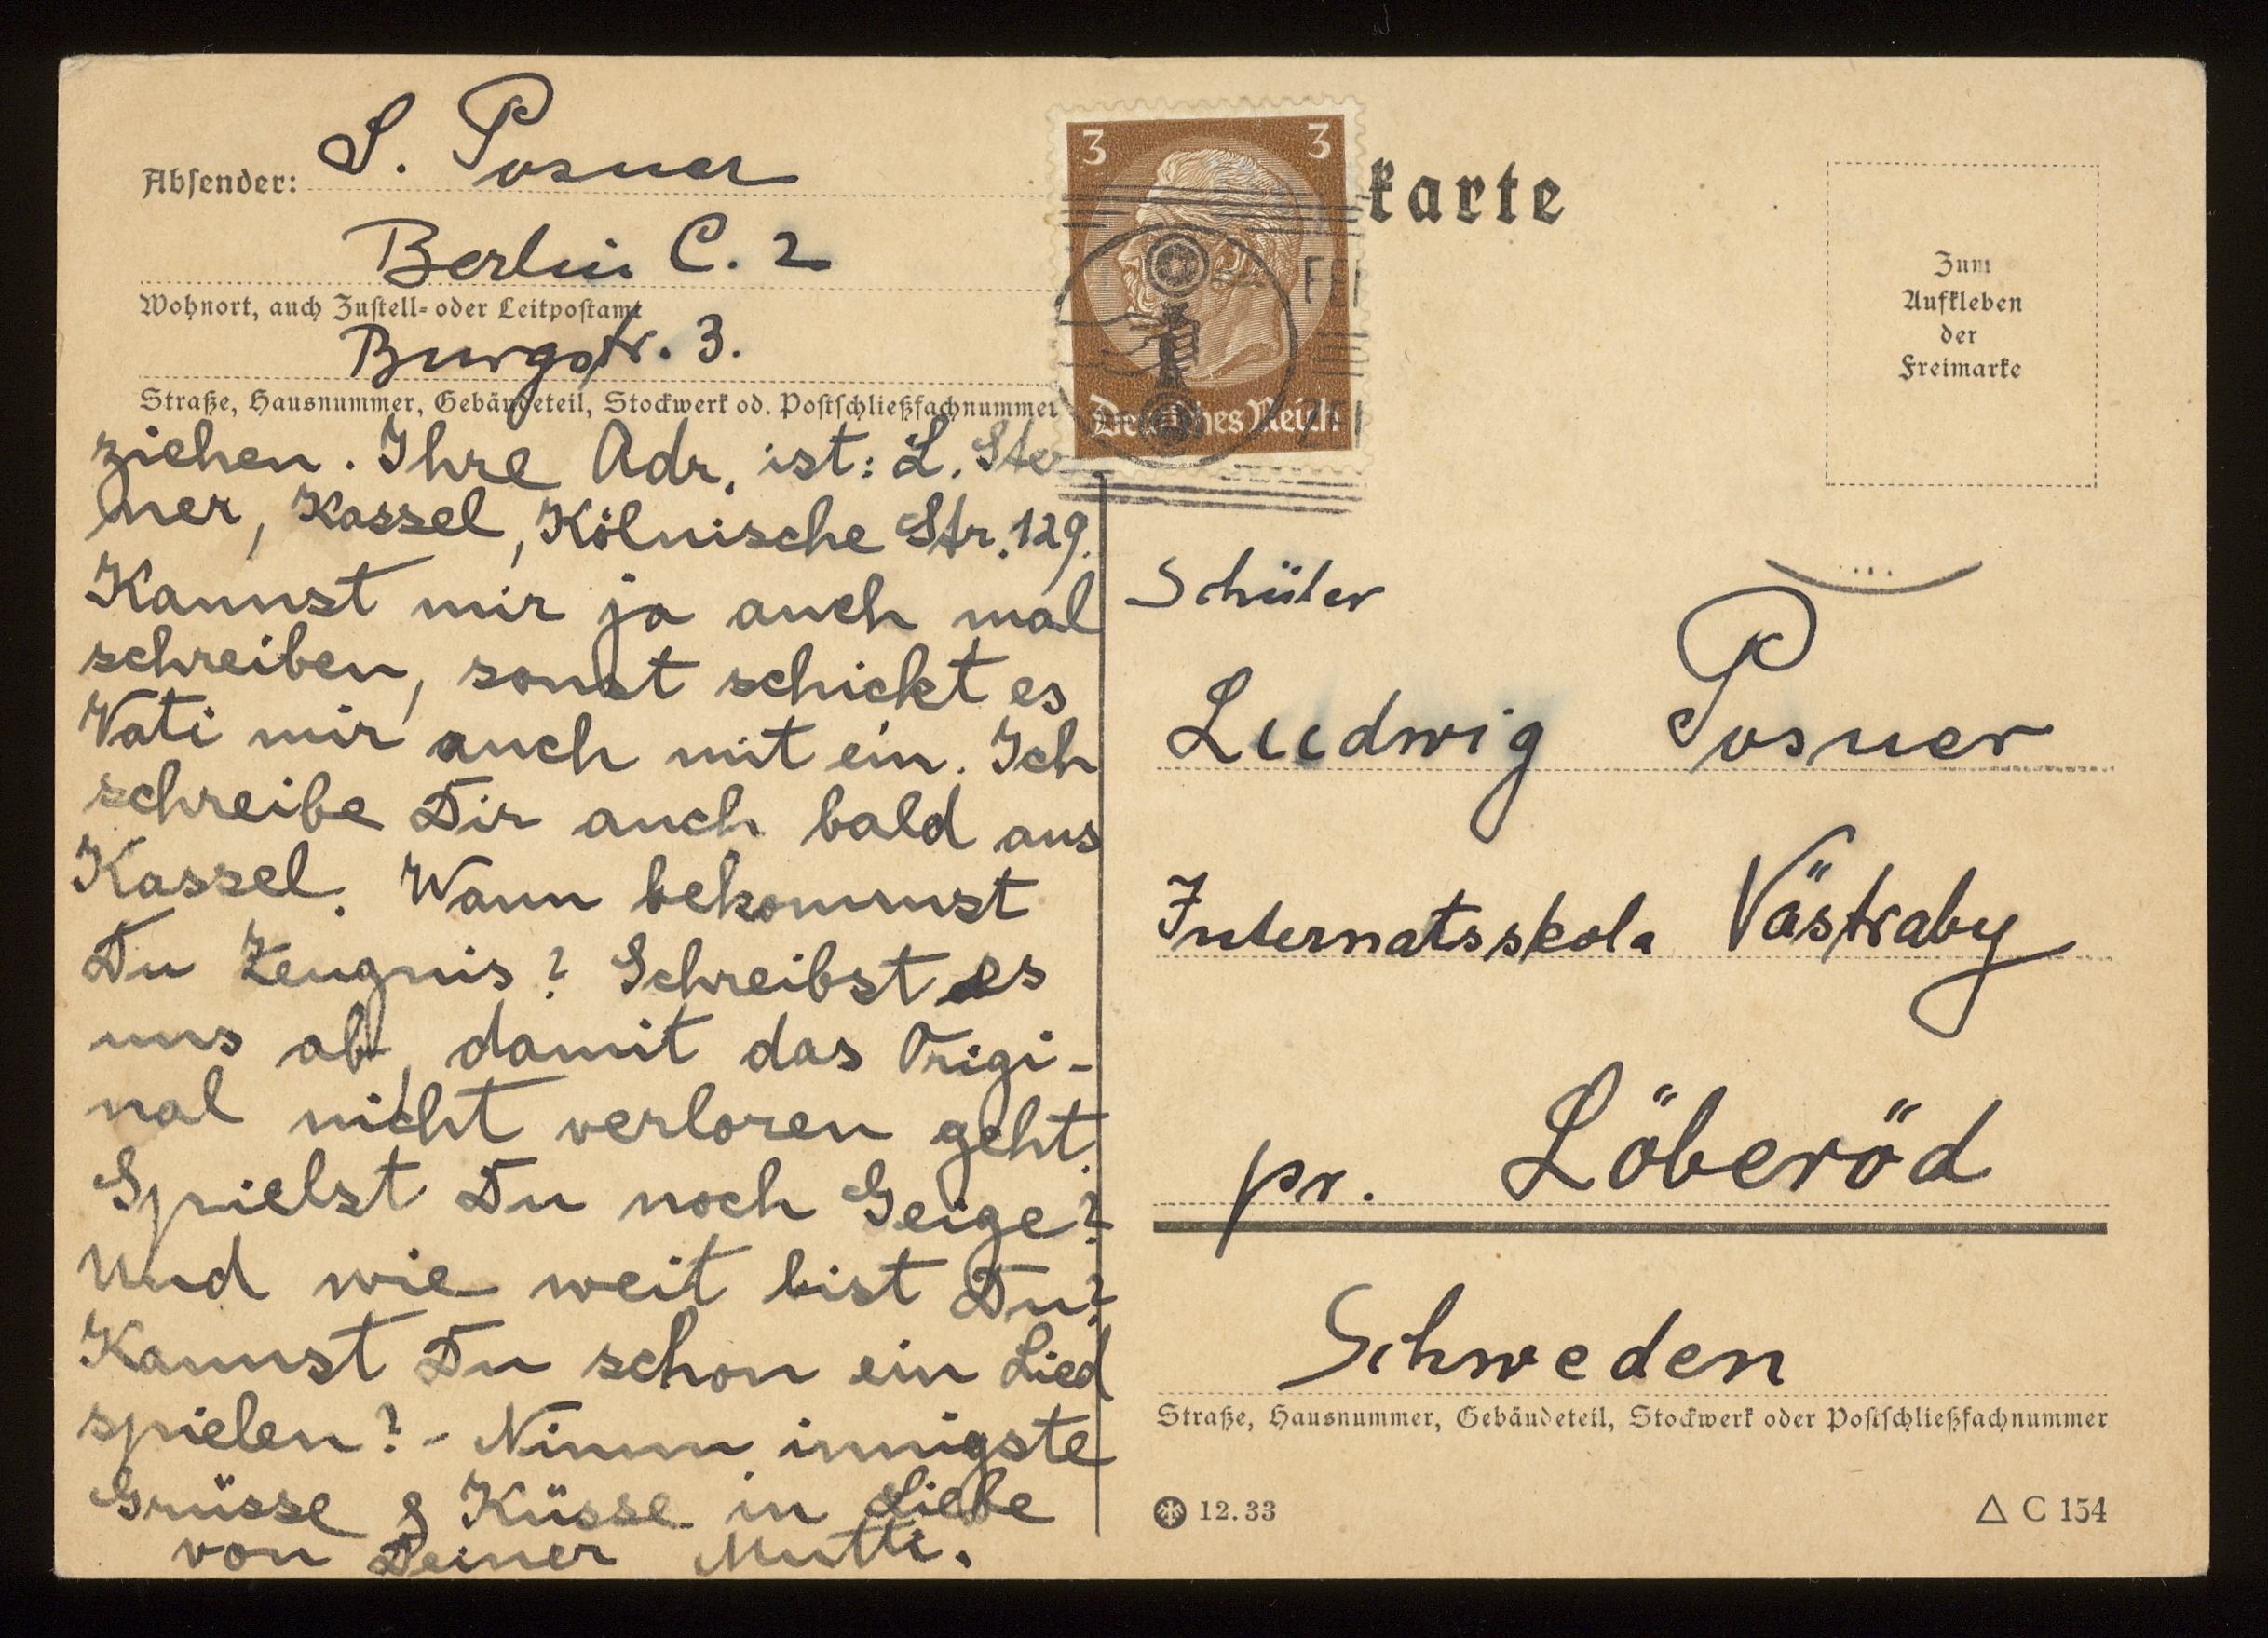 Absender: S. Posner
Berlin C. 2
Wohnort, auch Zustell- oder Leitpostamt
Burgstr. 3.
Straße, Hausnummer, Gebäudeteil, Stockwerk od. Postschließfachnummer
ziehen. Ihre Adr. ist: L. Ste
ner, Kassel, Kölnische Str. 129.
Kannst mir ja auch mal
schreiben, sonst schickt es
Vati mir auch mit ein. Ich
schreibe Dir auch bald aus
Kassel. Wann bekommst
Du Zeugnis? Schreibst es
uns ab, damit das Origi-
nal nicht verloren geht.
Spielst Du noch Geige?
Und wie weit bist Du?
Kannst Du schon ein Lied
spielen? - Nimm innigste
Grüsse & Küsse in Liebe
von Deiner Mutti.
3 3
Deutsches Reich
karte
Zum
Aufkleben
der
Freimarke
Schüler
Ludwig Posner
Internatsskola Västraby
pr. Löberöd
Schweden
Straße, Hausnummer, Gebäudeteil, Stockwerk oder Postschließfachnummer
12.33
△ C 154